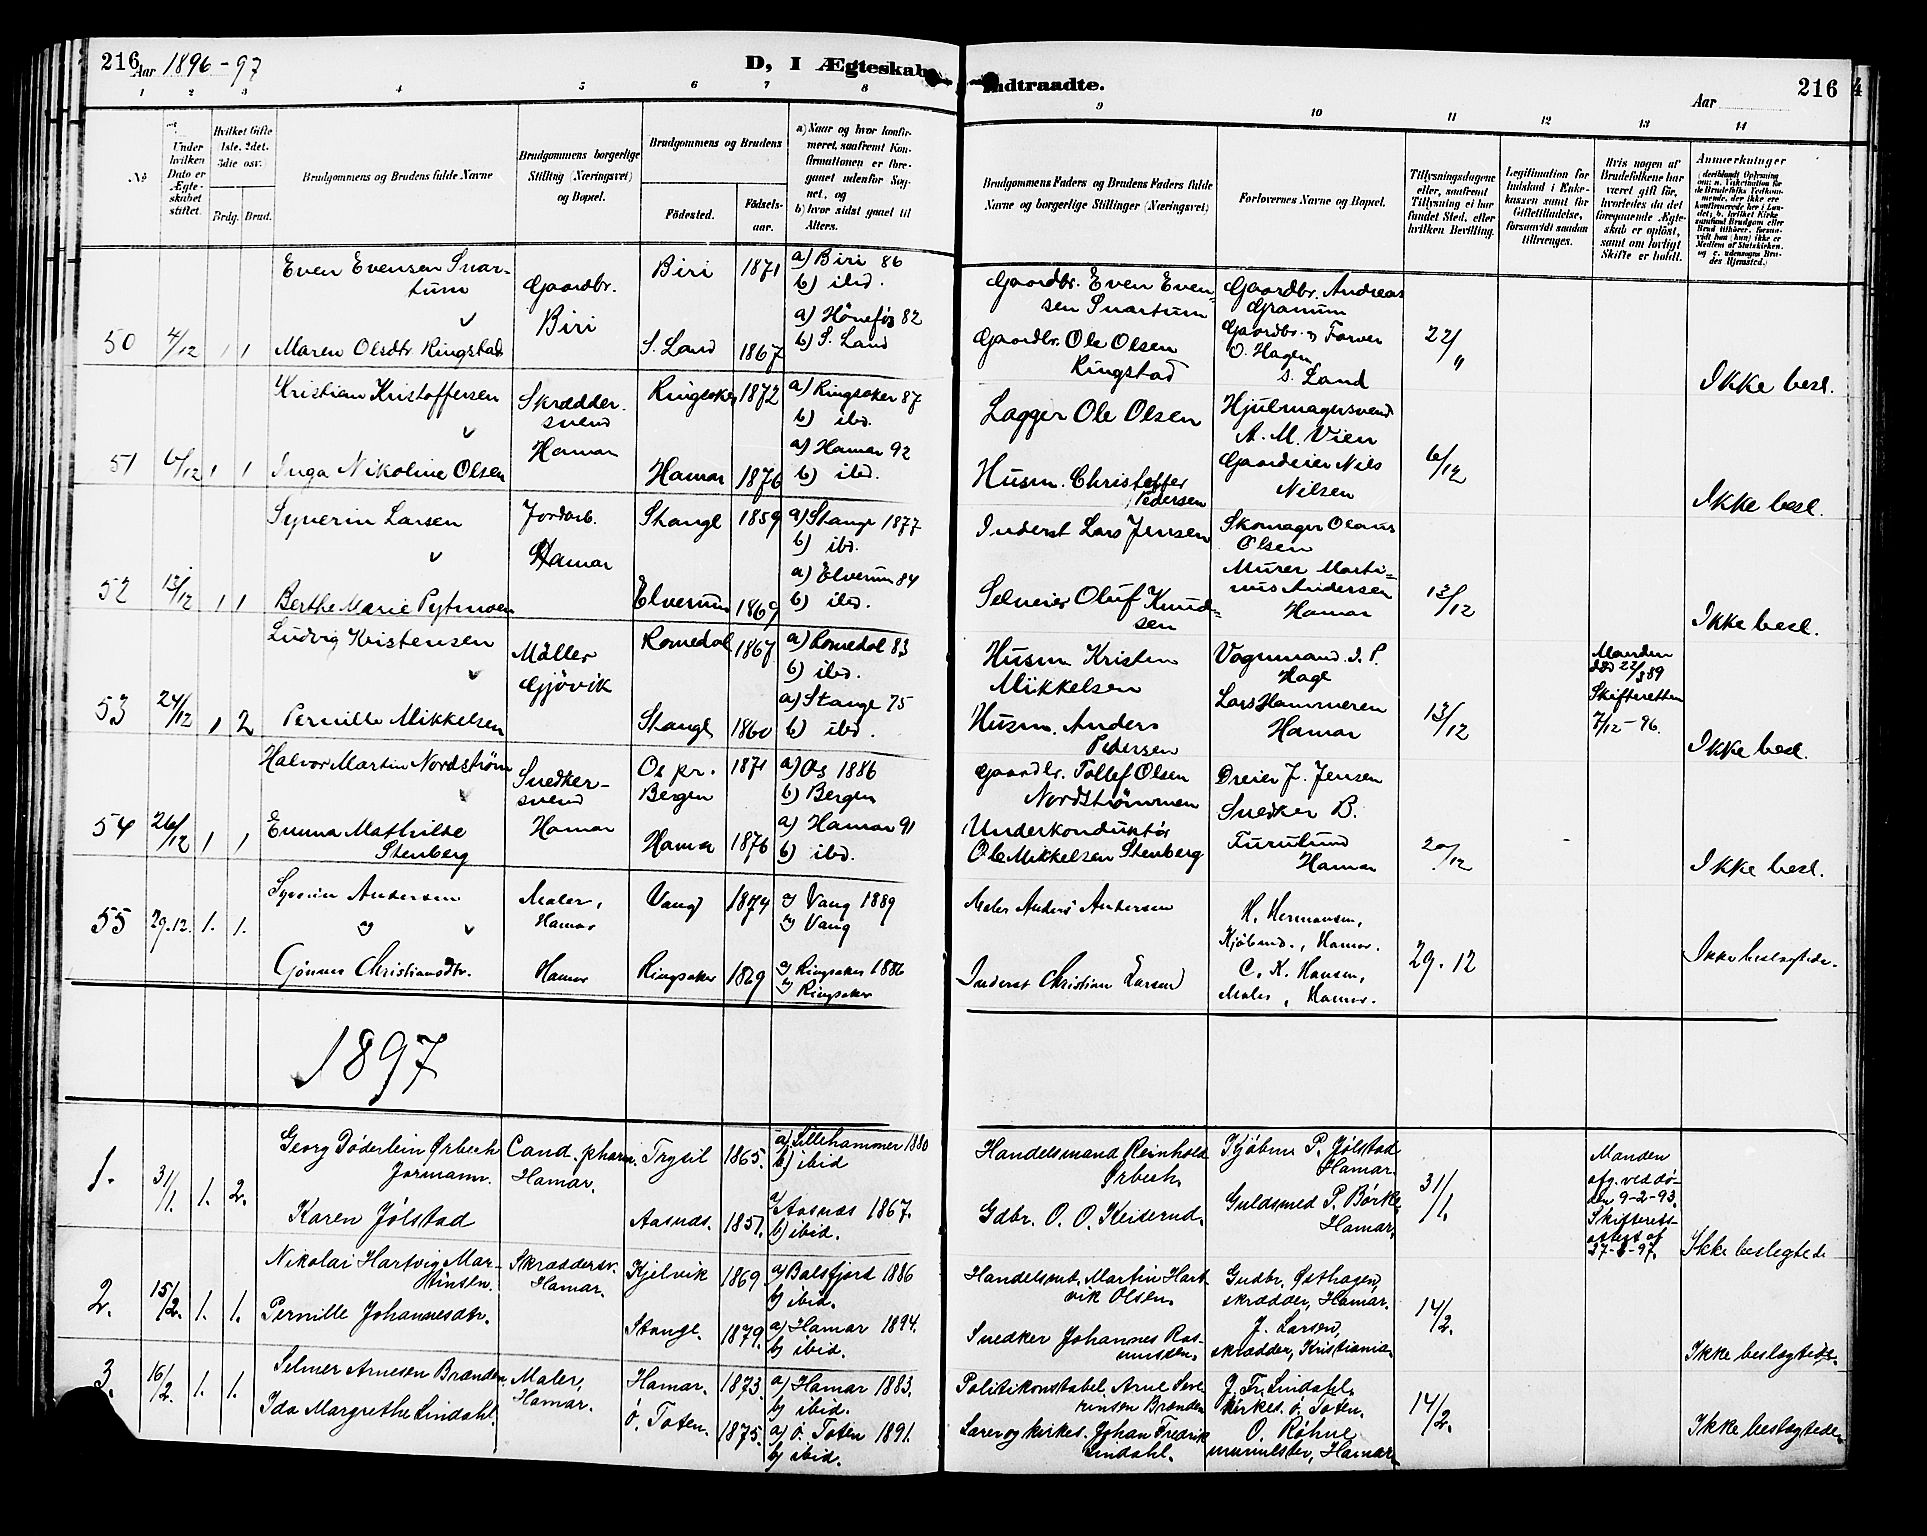 216 Aar 1896-97 D, I Ægteskab Indtraadte. Aar 216
1 2 3 4 5 6 7 8 9 10 11 12 13 14
№
Under hvilken Dato er Ægteskabet stiftet.
Hvilket Gifte 1ste, 2det, 3die osv.
Brdg. Brud.
Brudgommens og Brudens fulde Navne
Brudgommens borgerlige Stilling (Næringsvei) og Bopæl.
Brudgommens og Brudens
Fødested.
Fødsels-aar.
a) Naar og hvor konfirmeret, saafremt Konfirmationen er foregaaet udenfor Sognet, og
b) hvor sidst gaaet til Alters.
Brudgommens Faders og Brudens Faders fulde Navne og borgerlige Stillinger (Næringsvei)
Forlovernes Navne og Bopæl.
Tillysningsdagene eller, saafremt Tillysning ei har fundet Sted, efter hvilken Bevilling.
Legitimation for Indskud i Enkekassen samt for Giftetilladelse, forsaavidt saadan tiltrænges.
Hvis nogen af Brudefolkene har været gift før, hvorledes da det foregaaende Ægteskab er opløst, samt om lovligt Skifte er holdt.
Anmerkninger
50 4/12 1 1
Even Evensen Snar-
tum
Maren Olsdtr Ringstad
Gaardbr.
Biri
Biri 1871
S. Land 1867
a) Biri 86
b) ibd.
a) Hönefos 82
b) S. Land
Gaardbr. Even Even-
sen Snartum
Gaardbr. Ole Olsen
Ringstad
Gaardbr. Andreas
Granum
Gaardbr. & Farver
O. Hagen
S. Land
22/11
Ikke besl.
51 6/12 1 1
Kristian Kristoffersen
Inga Nikoline Olsen
Skrædder-
svend
Hamar
Ringsaker 1872
Hamar 1876
a) Ringsaker 87
b) ibd.
a) Hamar 92
b) ibd.
Lagger Ole Olsen
Husm. Christoffer
Pedersen
Hjulmagersvend
A. M. Vien
Gaardeier Nils
Nilsen
6/12
Ikke besl.
52 13/12 1 1
Syverin Larsen
Berthe Marie Pytmoen
Jordarb.
Hamar
Stange 1859
Elverum 1869
a) Stange 1877
b) ibd.
a) Elverum 84
b) ibd.
Inderst Lars Jensen
Selveier Oluf Knud-
sen
Skomager Olaus
Olsen
Murer Marti-
nus Andersen
Hamar
13/12
Ikke besl.
53 24/12 1 2
Ludvig Kristensen
Pernille Mikkelsen
Møller
Gjövik
Romedal 1867
Stange 1860
a) Romedal 83
b) ibd.
a) Stange 75
b) ibd.
Husm Kristen
Mikkelsen
Husm. Anders
Pedersen
Vognmand I. P.
Hage
Lars Hammeren
Hamar
13/12
Manden
död 22/3 89
Skifteretten
7/12-96.
Ikke besl.
54 26/12 1 1
Halvor Martin Nordstrøm
Emma Mathilde
Stenberg
Snedker-
svend
Hamar
Os pr.
Bergen 1871
Hamar 1876
a) Os 1886
b) Bergen
a) Hamar 91
b) ibd.
Gaardbr. Tollef Olsen
Nordstrømmen
Underkonduktør
Ole Mikkelsen Stenberg
Dreier J. Jensen
Snedker B.
Furulund
Hamar
20/12
Ikke besl.
55 29.12. 1. 1.
Syverin Andersen
og
Gjønnes Christiansdtr.
Maler,
Hamar
Hamar
Vang 1874
Ringsaker 1869
a) Vang 1889
b) Vang
a) Ringsaker 1886
b) Ringsaker
Maler Anders Andersen
Inderst Christian Larsen
H. Hermansen,
Kjøbmd., Hamar.
C. K. Hansen,
Maler, Hamar.
29.12
Ikke beslægtede.
1897
1. 31/1. 1. 2.
Georg Döderlein Ørbech
Jormann.
Karen Jølstad
Cand. pharm.
Hamar.
Trysil 1865.
Aasnæs. 1851.
a) Lillehammer 1880
b) ibid
a) Aasnæs 1867.
b) ibid.
Handelsmand Reinhold
Ørbech.
Gdbr. O. O. Keiserud.
Kjøbm. P. Jølstad
Hamar.
Guldsmed P. Børke,
Hamar.
31/1.
Manden
afg. ved dö-
den 9-2-93.
Skifterets-
attest af
27-1-97.
Ikke beslegtede
2. 15/2. 1. 1.
Nikolai Hartvig Mar-
tinsen.
Pernille Johannesdtr.
Skræddersv.
Hamar.
Kjelvik 1869
Stange. 1879.
a) Balsfjord 1886
b) ibid.
a) Hamar 1894.
b) ibid.
Handelsmd. Martin Hart-
vik Olsen.
Snedker Johannes Ras-
mussen.
Gudbr. Østhagen,
skrædder, Hamar.
J. Larsen,
skrædder, Kristiania.
14/2.
Ikke beslægtede.
3. 16/2. 1. 1.
Selmer Arnesen Brænden.
Ida Margrethe Lindahl.
Maler,
Hamar.
Hamar. 1873.
Ö. Toten. 1875.
a) Hamar 1883.
b) ibid.
a) Ö. Toten 1891.
b) ibid.
Politikonstabel Arne Seve-
rinsen Brænden
Lærer og kirkes. Johan Fredrik
Lindahl.
J. Fr. Lindahl,
kirkes. Ö. Toten.
O. Røhne
murmester, Hamar.
14/2.
Ikke beslægtede.